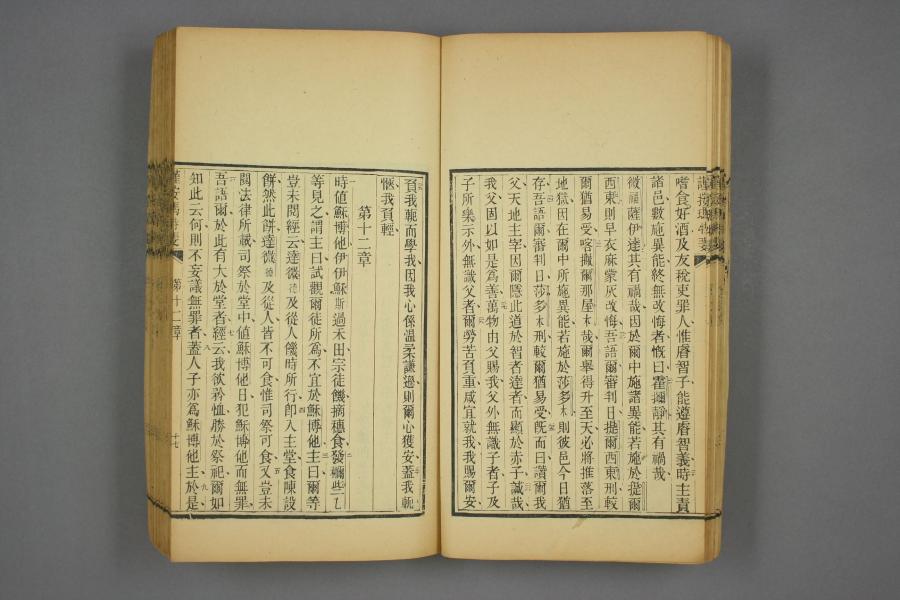 嗜食好酒及友稅吏罪人惟睿智子能遵睿智義時主責
諸邑數施異能終無改悔者慨曰霍擱靜其有禍哉
微福薩伊達其有禍哉因於爾中施諸異能若施於提爾
西東則早灰麻蒙灰改悔吾語爾審判日提爾西東刑較
爾猶易受喀撇爾那屋木哉爾舉得升至天必將推落至
地獄因在爾中所施異能若施於莎多木則彼邑今日猶
存吾語爾審判日莎多木刑較爾猶易受旣而曰讚爾我
父天地主宰因爾隱此道於智者達者而顯於赤子誠哉
我父因以如是爲善萬物由父賜我父外無識子者子及
子所樂示外無識父者爾勞苦負重咸宜就我我賜爾安
負我軛而學我因我心係溫柔謙遜則爾心獲安蓋我軛
愜我負輕
第十二章
時值穌博他伊伊穌斯過禾田宗徒饑摘穗食發爾些乙
等見之謂主曰試觀爾徒所爲不宜於穌博他主曰爾等
豈未閱經云達微德及從人饑時所行卽入主堂食陳設
餅然此餅達微德及從人皆不可食惟司祭可食又豈未
閱法律所載司祭於堂中値穌博他日犯穌博他而無罪
吾語爾於此有大於堂者經云我欲矜恤勝於祭祀爾如
知此云何則不妄議無罪者蓋人子亦爲穌博他主於是
第十二章
十七